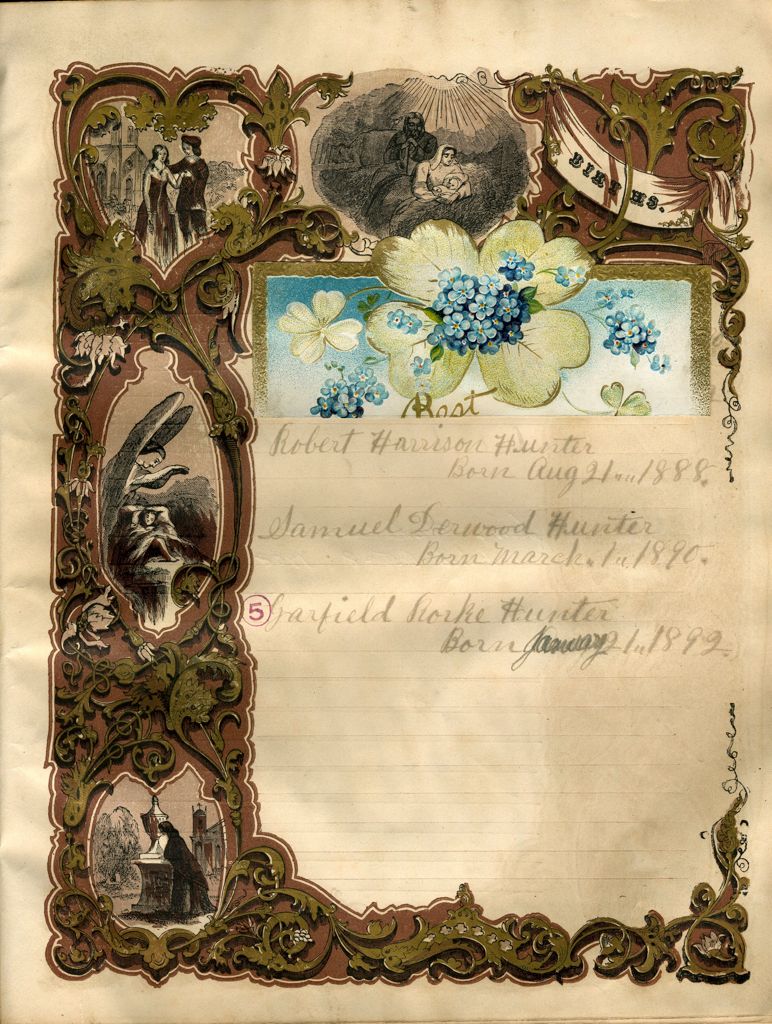 BIRTHS.
Best
Robert Harrison Hunter
Born Aug 21 1888.
Samuel Derwood Hunter
Born March. 1 1890.
5 Garfield Rorke Hunter
Born January 21 1892.